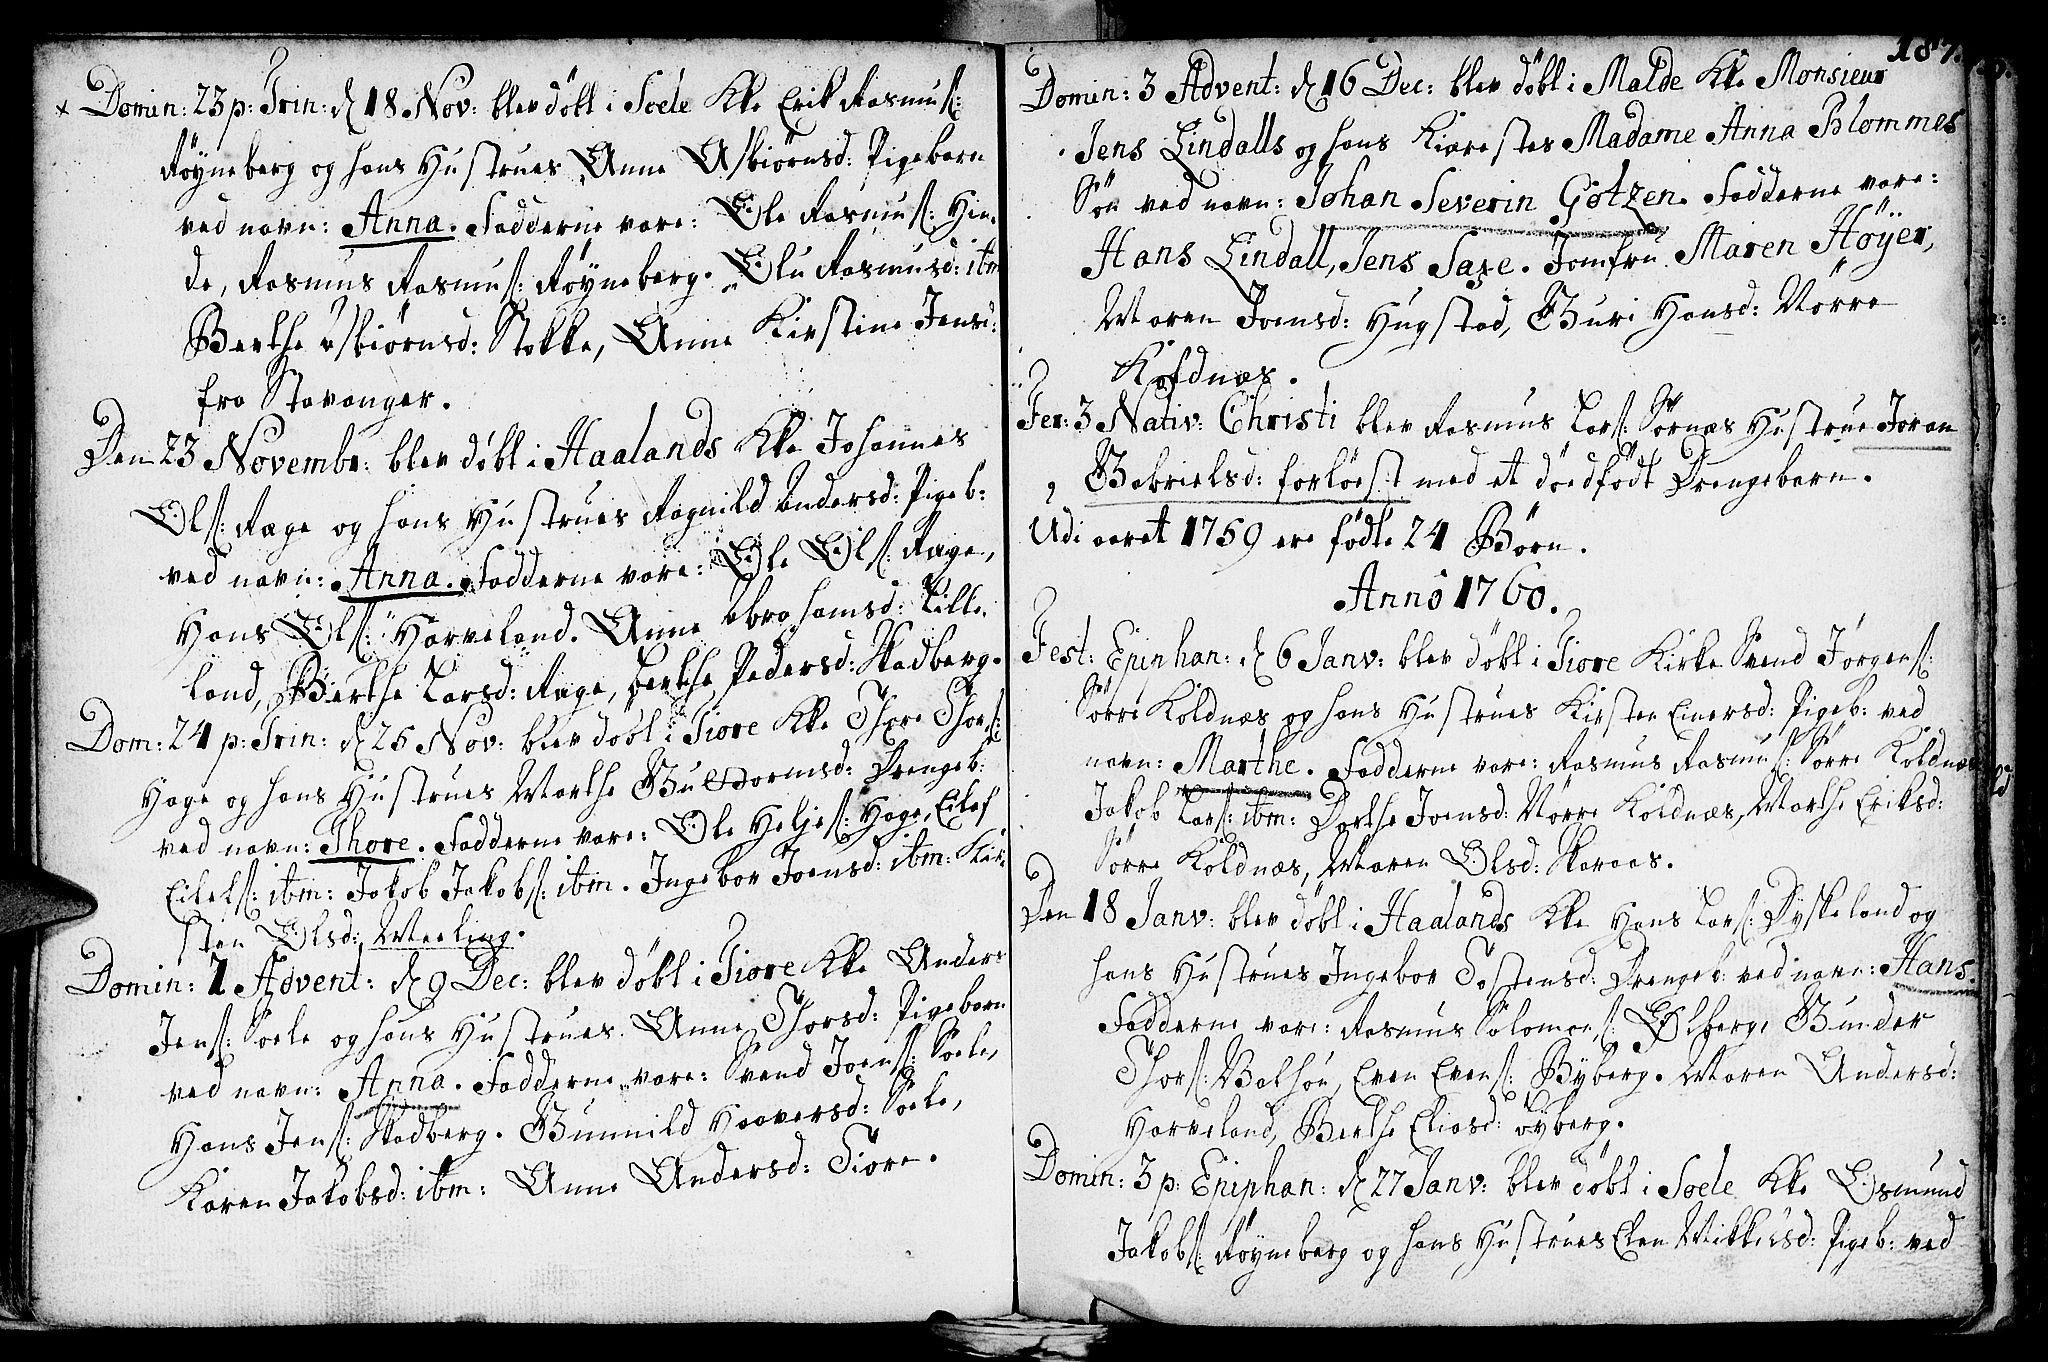 Domin: 23 p: Trin: d 18 Nov: blev döbt i Soele Kke Erik Rasmuss:
Röyneberg og hans Hustrues Anne Asbiörnsd: Pigebarn
ved navn: Anna. Fadderne vare: Ole Rasmuss: Hin-
de, Rasmus Rasmuss: Röyneberg. Olu Rasmusd: ibm
Berthe Asbiörnsd: Stokke, Anne Kirstine Jensd:
fra Stavanger.
Den 23 Novembr: blev döbt i Haalands Kke Johannes
Ols: Ræge og hans Hustrues Ragnild Andersd: Pigeb:
ved navn: Anna. Fadderne vare: Ole Ols: Ræge,
Hans Ols: Harveland. Anne Abrahamsd: Lille-
land, Berthe Larsd: Ræge, Berthe Pedersd: Skadberg.
Dom: 24 p: Trin: d 25 Nov: blev döbt i Tiore Kke Thore Thors:
Hage og hans Hustrues Marthe Guttormsd: Drengeb:
ved navn: Thore. Fadderne vare: Ole Heljes: Hage, Eilef
Eilefs: ibm: Jakob Jakobs: ibm. Ingebor Joensd: ibm: Kir-
sten Olsd: Meeling.
Domin: 1 Advent: d 9 Dec: blev döbt i Tiore Kke Anders
Jens: Soele og hans Hustrues Anne Thorsd: Pigebarn
ved navn: Anna. Fadderne vare: Svend Joens: Soele,
Hans Jens: Skadberg. Gunnild Haaversd: Soele,
Karen Jakobsd: ibm: Anne Andersd: Tiore.
187.
Domin: 3 Advent: d 16 Dec: blev döbt i Malde Kke Monsieur
Jens Lindalls og hans Kiærestes Madame Anna Blommes
Sön ved navn: Johan Severin Götzen. Fadderne vare:
Hans Lindall, Jens Saxe. Jomfru Maren Höyer,
Maren Joensd: Hugstad, Guri Hansd: Nörre
Koldnæs.
Fer: 3 Nativ: Christi blev Rasmus Lars: Sörnæs Hustrue Joran
Gabrielsd: forlöest med et döedfödt Drengebarn.
Udi aaret 1759 ere födte 24 Börn.
Anno 1760.
Fest: Epiphan: d 6 Janv: blev döbt i Tiore Kirke Svend Jörgens:
Sörre Koldnæs og hans Hustrues Kirsten Einersd: Pigeb: ved
navn: Marthe. Fadderne vare: Rasmus Rasmuss: Sörre Koldnæs
Jakob Lars: ibm: Dorthe Joensd: Nörre Koldnæs, Marthe Eriksd:
Sörre Koldnæs, Maren Olsd: Skaraas.
Den 18 Janv: blev döbt i Haalands Kke Hans Lars: Dyskeland og
hans Hustrues Ingebor Tostensd: Drengeb: ved navn: Hans.
Fadderne vare: Rasmus Salomons: Ølberg, Gunder
Thors: Boshön, Even Evens: Byberg. Maren Andersd:
Harveland, Berthe Eliasd: Byberg.
Domin: 3 p: Epiphan: d 27 Janv: blev döbt i Soele Kke Osmund
Jakobs: Röyneberg og hans Hustrues Elen Mikkelsd: Pigeb: ved